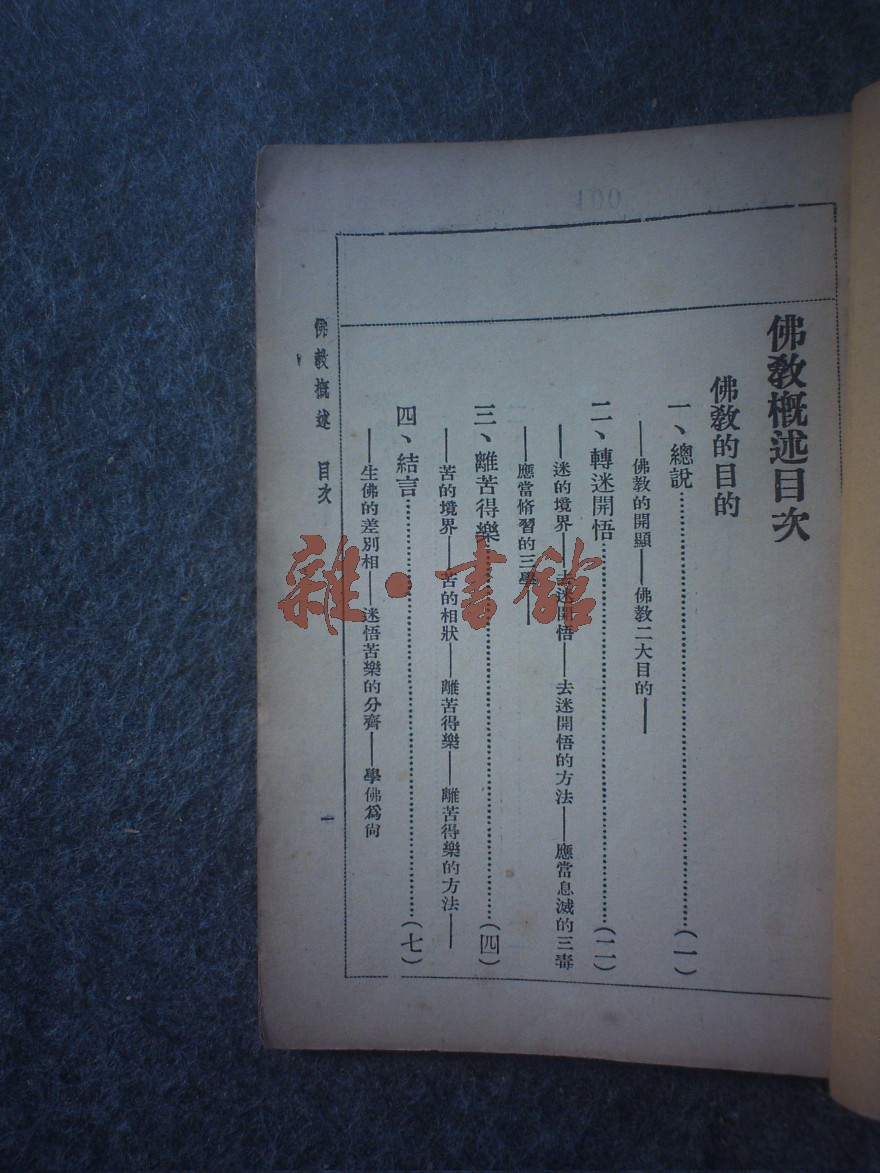 佛教概述目次
佛教的目的
一、總說……………………(一)
——佛教的開顯——佛教二大目的——
二、轉迷開悟……………………(二)
——迷的境界——去迷開悟——去迷開悟的方法——應當息滅的三毒
——應當修習的三學——
三、離苦得樂……………………(四)
——苦的境界——苦的相狀——離苦得樂——離苦得樂的方法——
四、結言……………………(七)
——生佛的差別相——迷悟苦樂的分齊——學佛為尚
佛教概述 目次
一
100
雜·書館